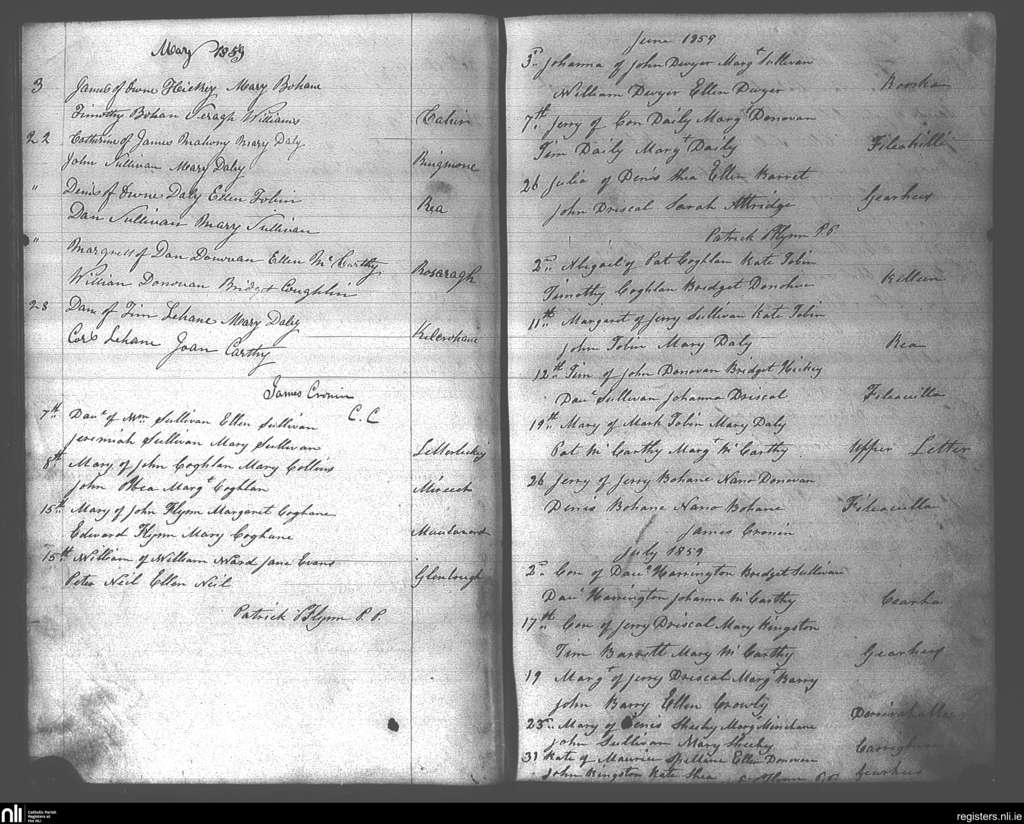 May 1859
3 James of Owne Hickey Mary Bohane
Timothy Bohan Teragh Williams Cahir
22 Catherine of James Mahony Mary Daly
John Sullivan Mary Daly
" Denis of Owne Daly Ellen Tobin Rea
Dan Sullivan Mary Sullivan
" Margrett of Dan Donovan Ellen McCarthy
William Donovan Bridget Coughlin Rosaragh
28 Danl of Tim Lehane Mary Daly
Lehane Joan Carthy
James Cronin
C.C
7th Danl of Wm Sullivan Ellen Sullivan
Jeremiah Sullivan Mary Sullivan Letterlickey
8th Mary of John Coghlan Mary Collins
John Shea Margt Coghlan
15th Mary of John Flynn Margaret Coghane
Edward Flynn Mary Coghane
15th William of William Ward Jane Evans
Peter Neil Ellen Neil Glenlough
Patrick Flynn P.P.
June 1859
3rd Johanna of John Dwyer Margt Sullivan
William Dwyer Ellen Dwyer
7th Jerry of Con Daily Margt Donovan
Tim Daily Margt Daily
26 Julia of Denis Shea Ellen Barret
John Driscol Sarah Attridge Gearhies
Patrick Flynn P.P.
2nd Abigail of Pat Coghlan Kate Tobin
Timothy Coghlan Bridget Donohue Killeen
11th Margaret of Jerry Sullivan Kate Tobin
John Tobin Mary Daly Rea
12th Tim of John Donovan Bridget Hickey
Danl Sullivan Johanna Driscol
19th Mary of Mark Tobin Mary Daly
Pat McCarthy Margt McCarthy Upper Letter
26 Jerry of Jerry Bohane Nano Donovan
Denis Bohane Nano Bohane
James Cronin
July 1859
2nd Con of Danl Harrington Bridget Sullivan
Danl Harrington Johanna McCarthy
17th Con of Jerry Driscol Mary Kingston
Tim Barrett Mary McCarthy Gearhies
19 Margt of Jerry Driscol Margt Barry
John Barry Ellen Crowly
23rd Mary of Denis Sheehy Mary Minihane
John Sullivan Mary Sheehy
31 Kate of Maurice Spillane Ellen Donovan
John Kingston Kate Shea Gearhies
nli Catholic Parish
Registers at
the NLI
registers.nli.ie